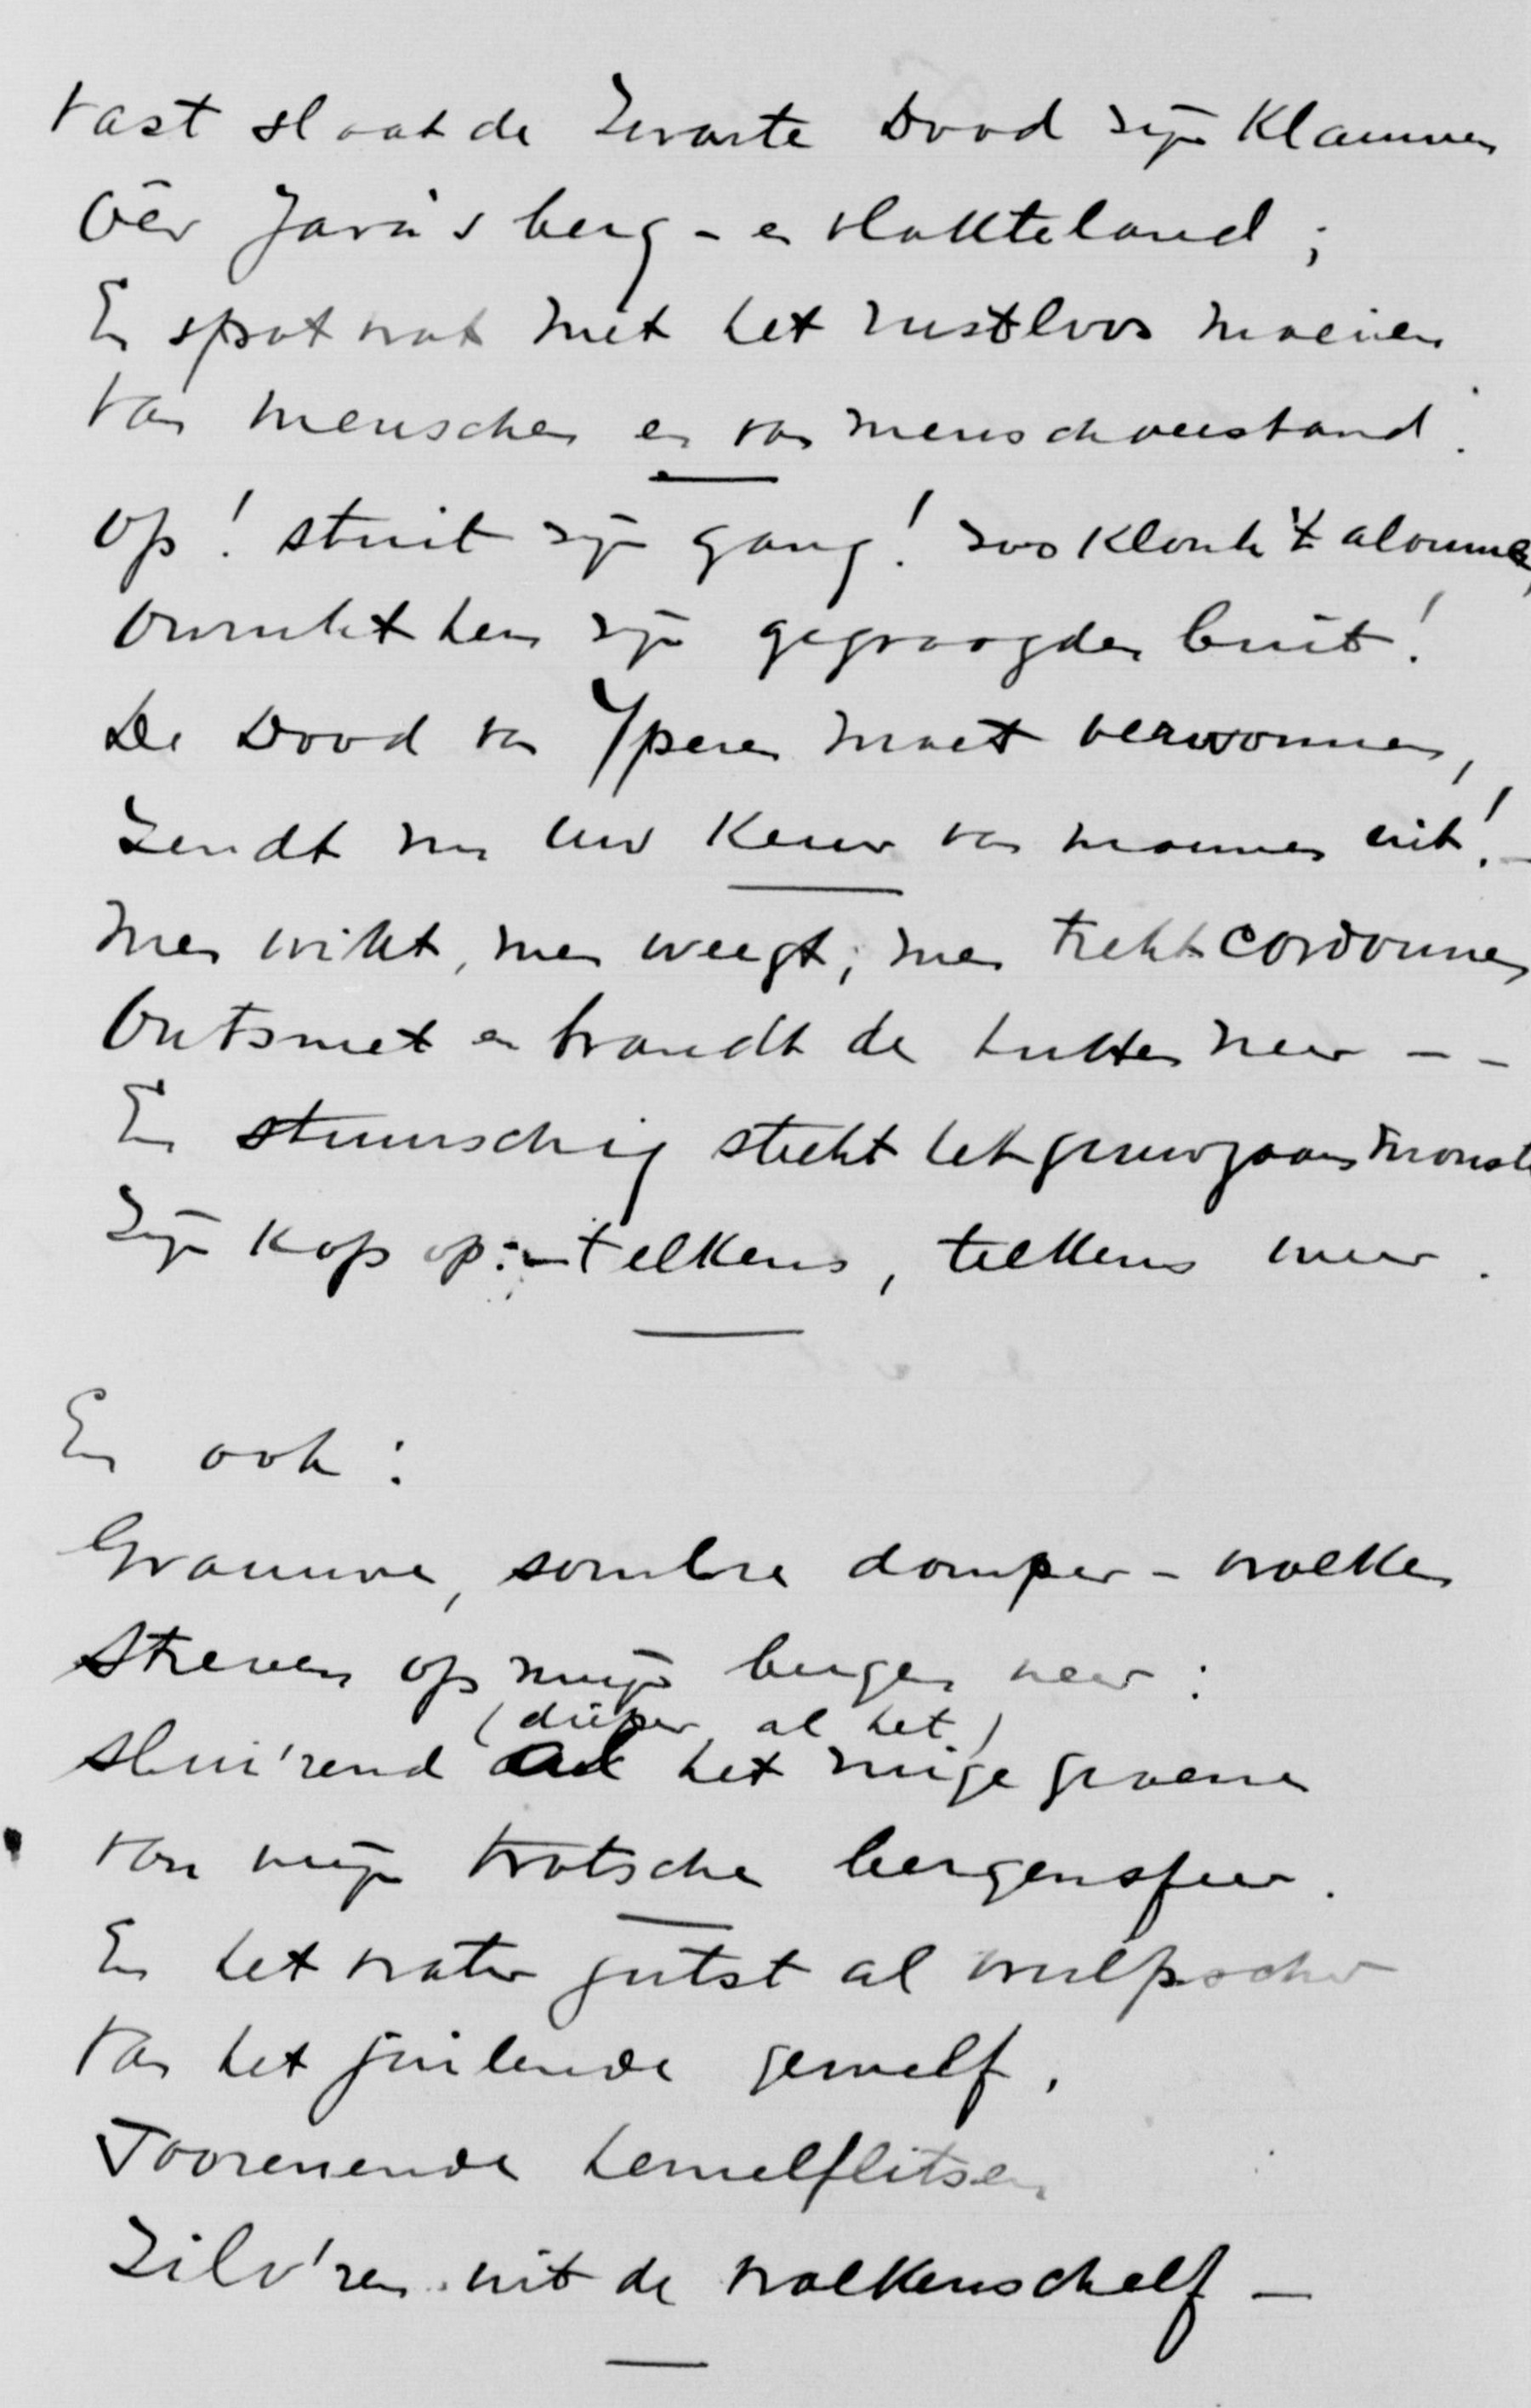 Vast slaat de Zwarte Dood zijn Klauwen
Oêr Java's berg- en vlakteland;
En spot wat met het rustloos moeien
Van menschen en van menschverstand.
Op! stuit zijn gang! zoo klonk 't alomme,
Ontrukt hem zijn gegraagden buit!
De Dood van Yperen moet verwonnen,
Zendt nu uw keur van mannen uit! -
Men wikt, men weegt; men trekt cordonnen
Ontsmet en brandt de hutten neer - -
En stuurschig steekt het gruwzaam monst
Zijn kop op: - telkens, telkens meer.
En ook:
Grauwe, sombre domper-wolken
Streven op mijn bergen neer:
(dieper al het)
Slui'rend al het ruige groene
Van mijn trotsche bergensfeer.
En het water gutst al wulpscher
Van het huilende gewelf.
Toorenende hemelflitsen
Zilv'ren uit de wolkenschelf -